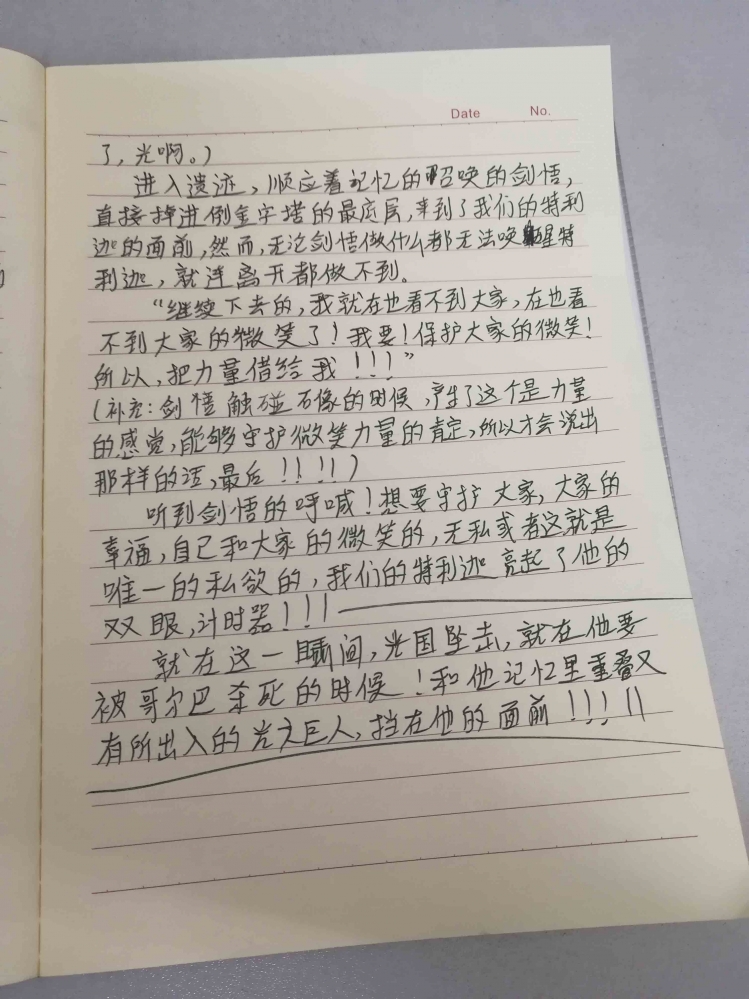 Date No.
了，光啊。）
进入遗迹，顺应着记忆的召唤的剑悟，
直接掉进倒金字塔的最底层，来到了我们的特利
迦的面前，然而，无论剑悟做什么都无法唤醒特
利迦，就连离开都做不到。
“继续下去的，我就在也看不到大家，在也看
不到大家的微笑了！我要！保护大家的微笑！
所以，把力量借给我！！！”
（补充：剑悟触碰石像的时候，产生了这个是力量
的感觉，能够守护微笑力量的肯定，所以才会说出
那样的话，最后！！！！）
听到剑悟的呼喊！想要守护大家，大家的
幸福，自己和大家的微笑的，无私或者这就是
唯一的私欲的，我们的特利迦亮起了他的
双眼，计时器！！！
就在这一瞬间，光国坠击，就在他要
被哥尔巴杀死的时候！和他记忆里重叠又
有所出入的光之巨人，挡在他的面前！！！！！